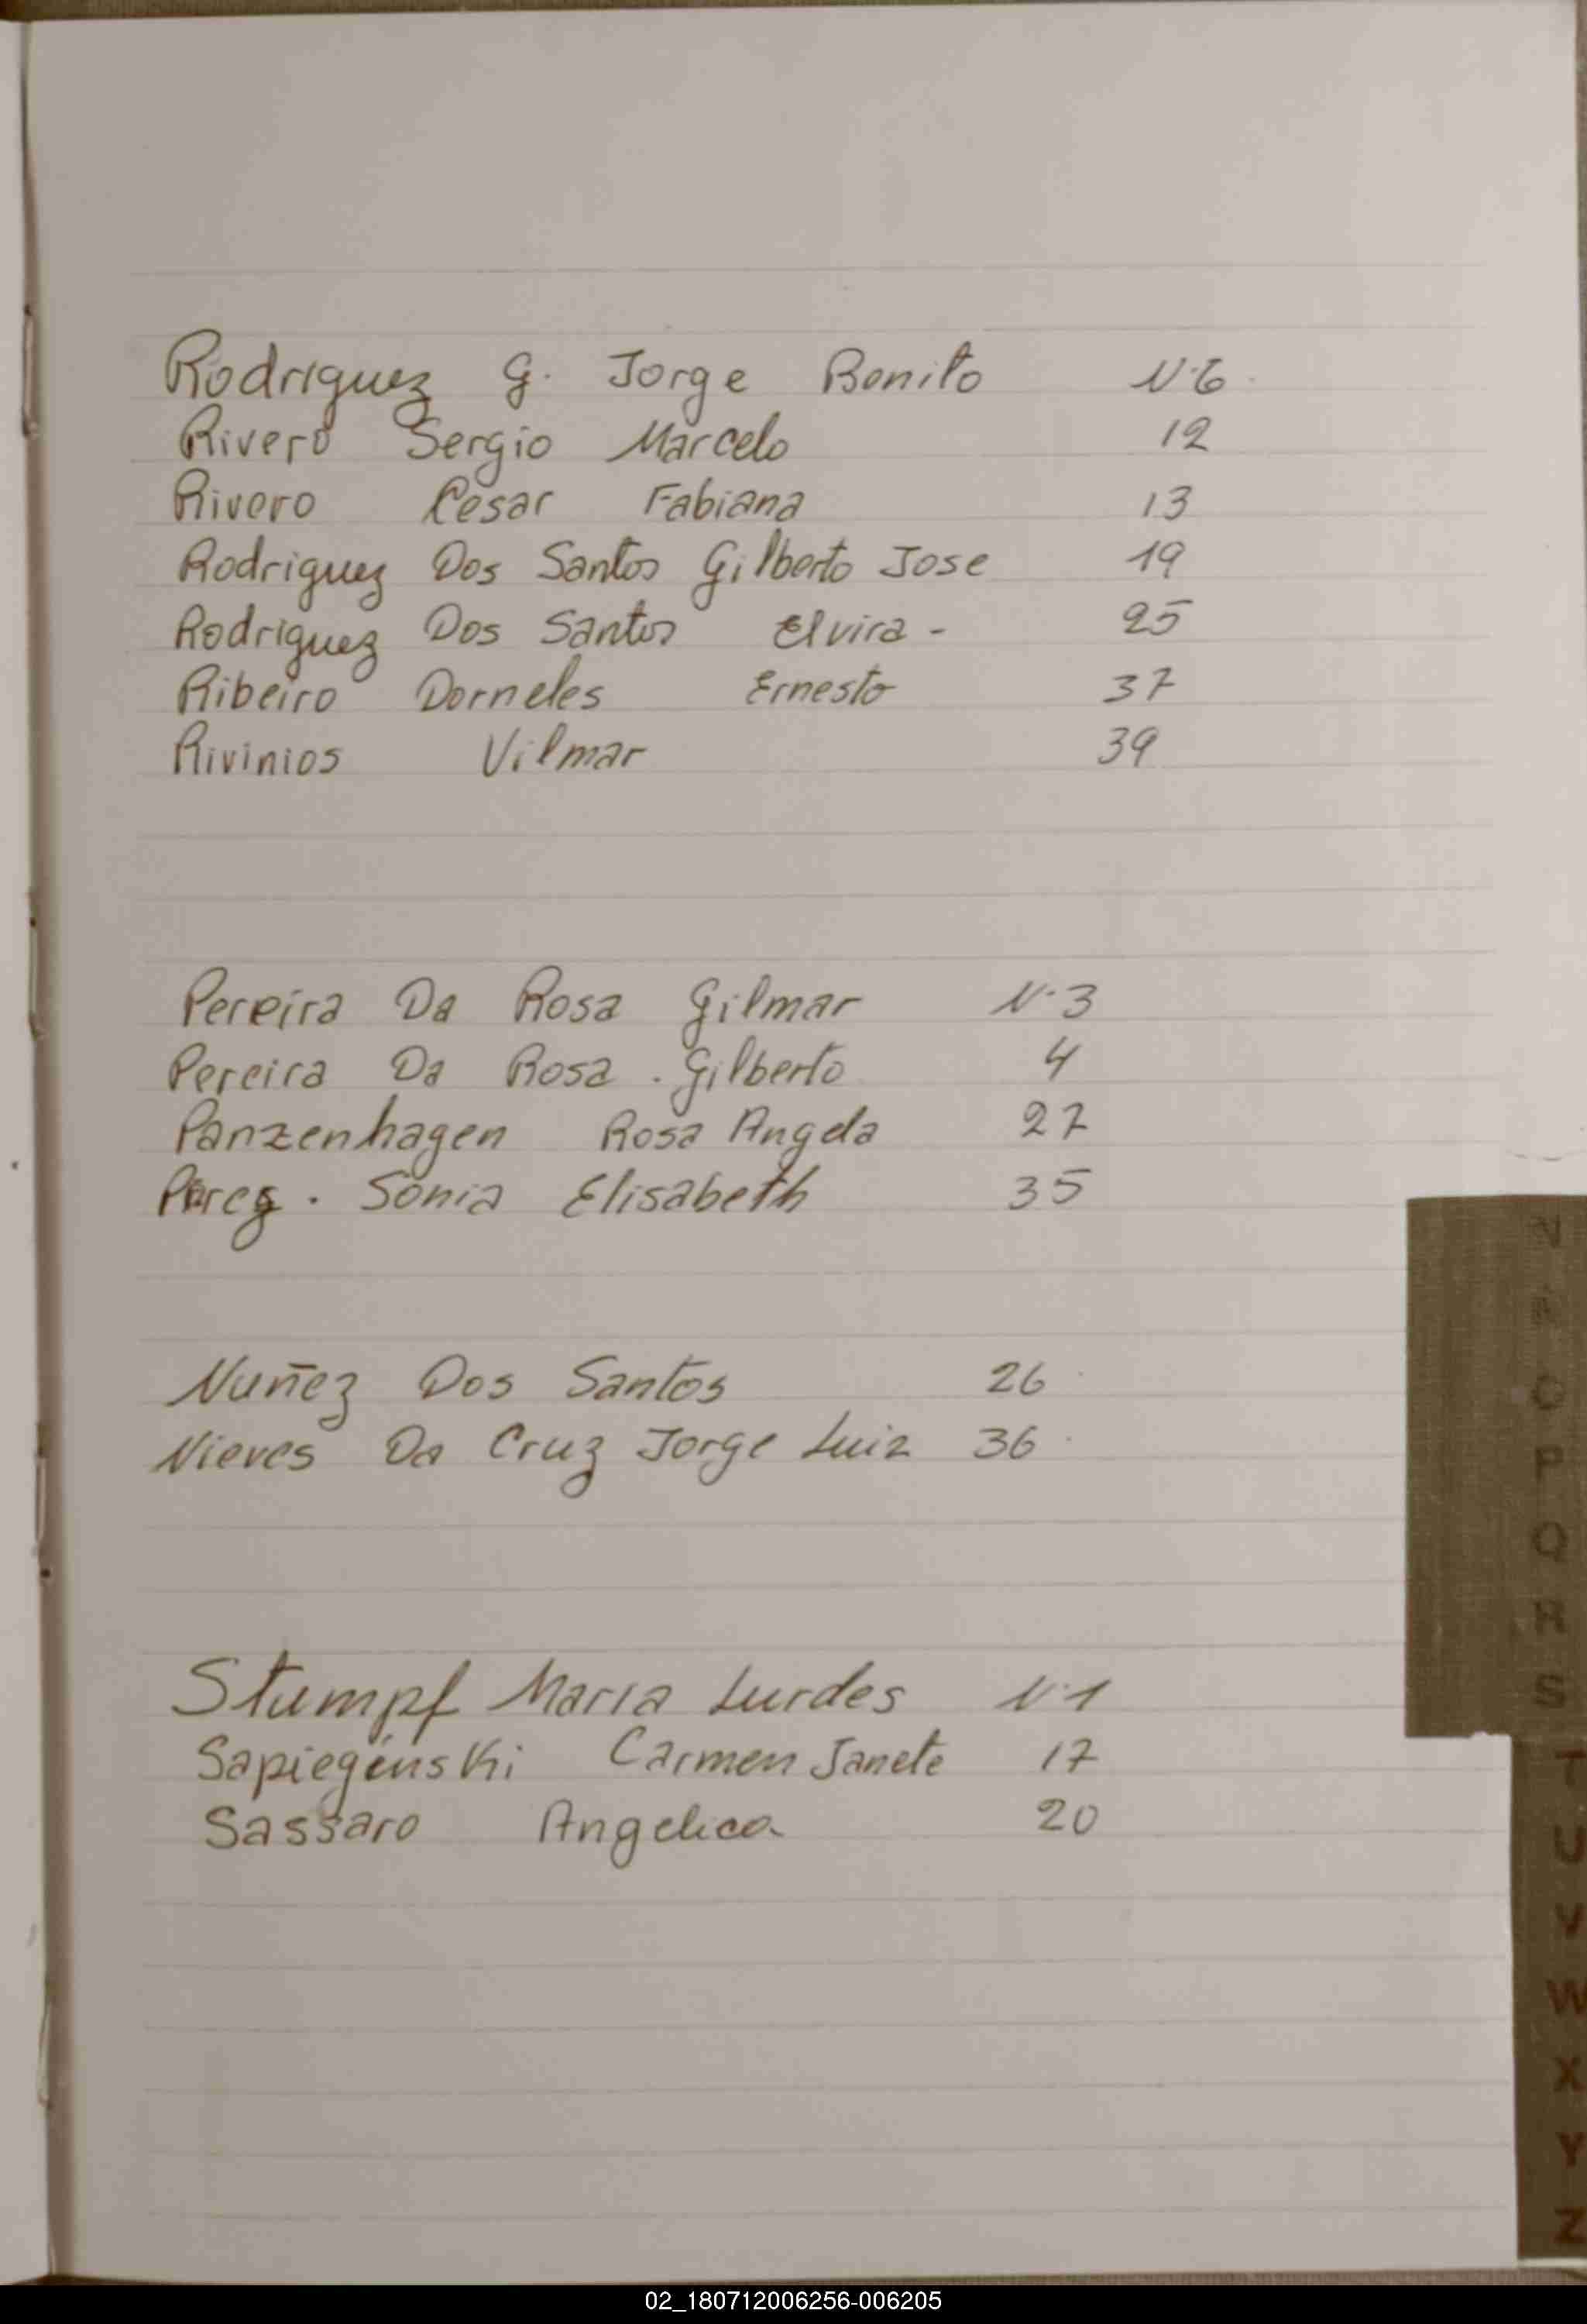 Rodriguez G. Jorge Benito N·6
Rivero Sergio Marcelo 12
Rivero Cesar Fabiana 13
Rodriguez Dos Santos Gilberto Jose 19
Rodriguez Dos Santos Elvira - 25
Ribeiro Dorneles Ernesto 37
Rivinios Vilmar 39
Pereira Da Rosa Gilmar N·3
Pereira Da Rosa . Gilberto 4
Panzenhagen Rosa Angela 27
Perez . Sonia Elisabeth 35
Nuñez Dos Santos 26
Nieves Da Cruz Jorge Luiz 36
Stumpf Maria Lurdes N·1
Carmen Janete 17
Sassaro Angelica 20
N
O
P
Q
R
S
T
U
V
W
X
Y
Z
02_180712006256-006205